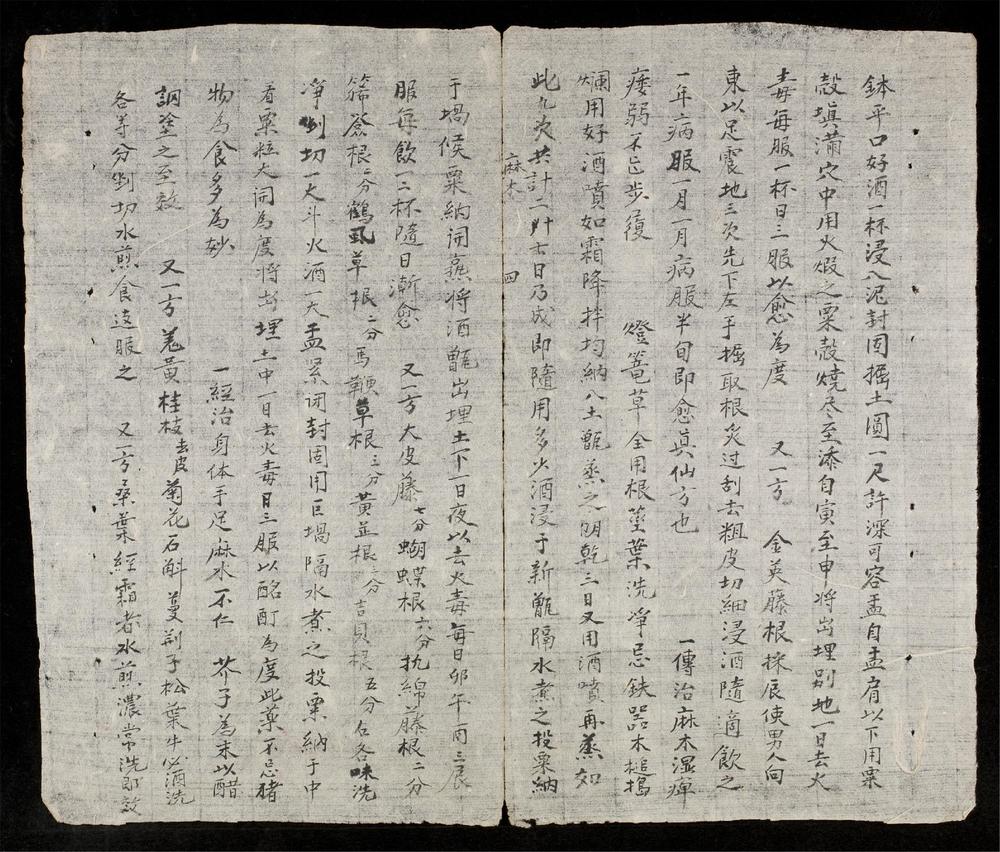 鉢平口好酒一杯浸入泥封固掘土圓一尺許深可容盂自盂肩以下用粟
殼填滿穴中用火煅之粟殼燒尽至添自寅至申將出埋別地一日去火
毒每服一杯日三服以愈為度　又一方　金英藤根採辰使男人向
東以足震地三次先下左手掘取根炙过刮去粗皮切細浸酒隨適飲之
一年病服一月一月病服半旬即愈眞仙方也　一傳治麻木濕痺
痿弱不能步履　燈篭草全用根莖葉洗淨忌鉄器木槌搗
爛用好酒噴如霜降拌均納入土甑蒸之陰乾三日又用酒噴再蒸如
此九次共計二十七日乃成即隨用多少酒浸于新甑隔水煮之投粟納
麻木　四
于堝候粟納開蕉將酒甑出埋土下一日夜以去火毒每日卯午酉三辰
服每飲一二杯隨日漸愈　又一方大皮藤七分蝴蝶根六分扰綿藤根二分
筛簽根二分鶴虱草根二分馬鞭草根三分黃並根三分吉貝根五分右各味洗
淨剉切一大斗火酒一大盂緊閉封固用巨堝隔水煮之投粟納于中
看粟粒大開為度將出埋土中一日去火毒日三服以酩酊為度此藥不忌猪
物為食多為妙　一經治身体手足麻木不仁　芥子為末以醋
調塗之至效　又一方羌黃桂枝去皮菊花石斛蔓荆子松葉牛必酒洗
各等分剉切水煎食遠服之　又一方桑葉經霜者水煎濃常洗即效